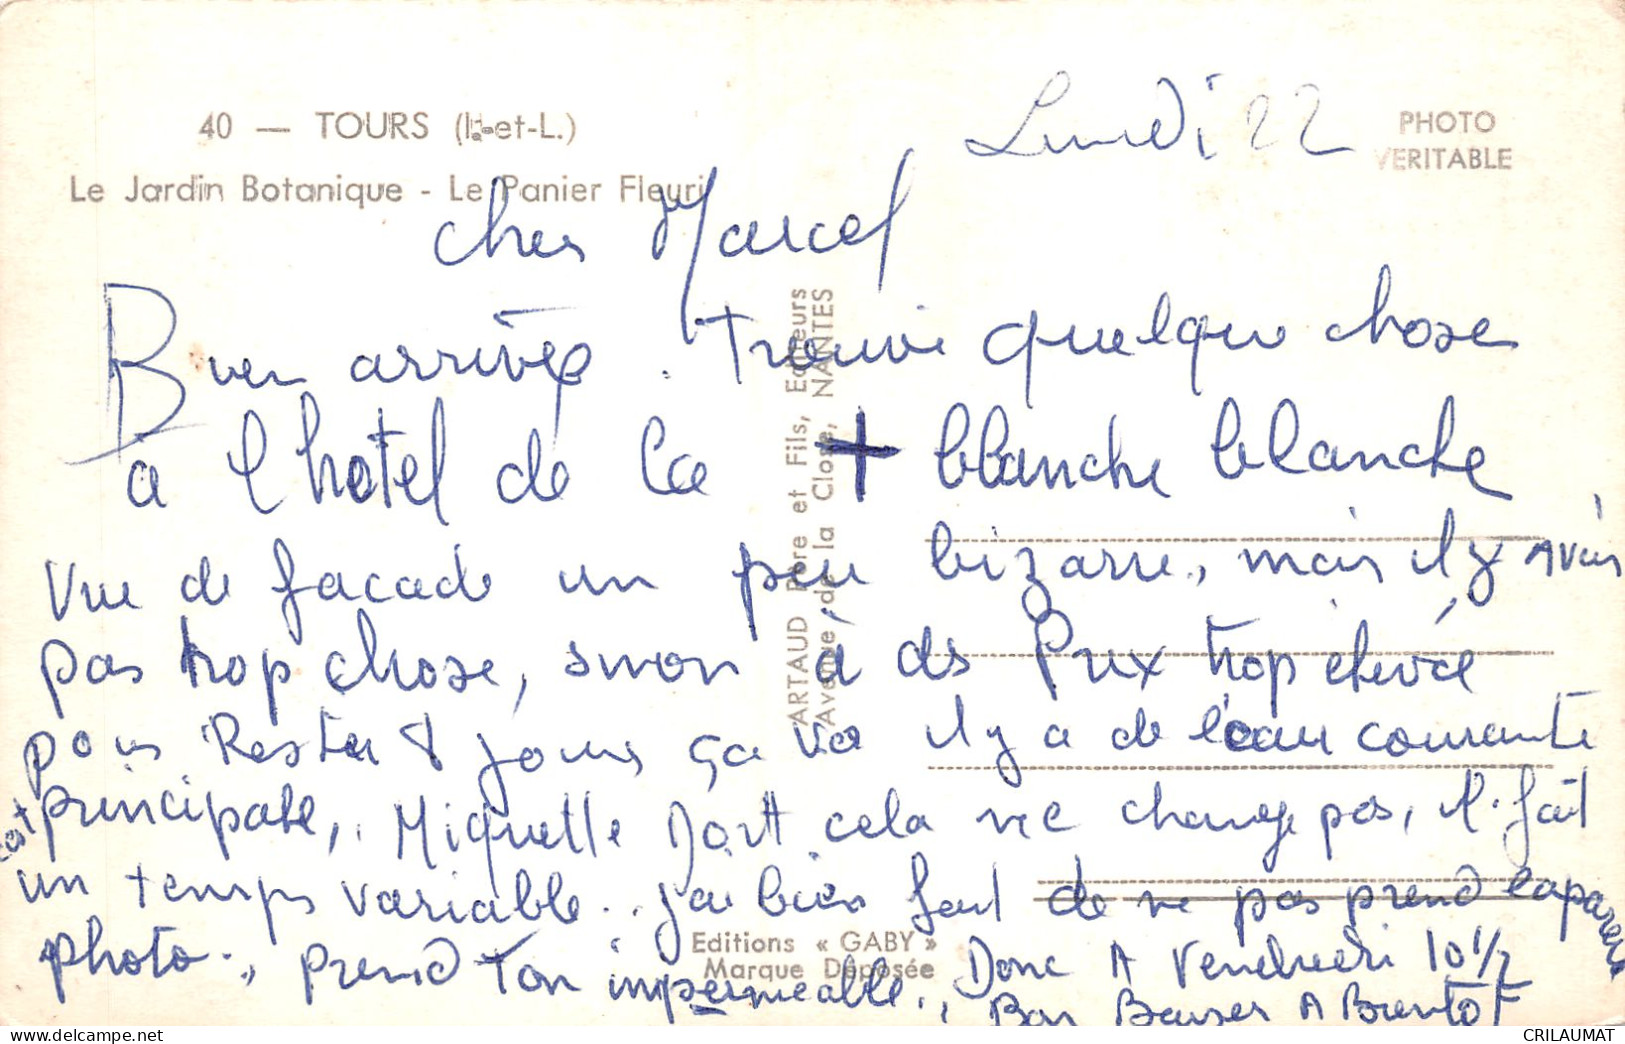 40 — TOURS (I.-et-L.)
Le Jardin Botanique - Le Panier Fleuri
PHOTO
VERITABLE
Lundi 22
cher Marcel
Bien arrivés. Trouvé quelque chose
a l'hotel de la + blanche blanche
Vue de facade un peu bizarre, mais il y avais
pas trop chose, sinon à des Prix trop elevée
pour Rester 8 jours ça va il y a de l'eau courante
est principale, Miquette dort cela ne change pas, il fait
un temps variable.. j'ai bien fait de ne pas prend l'aparein
photo., prend ton impermeable., Donc A Vendredi 10 1/2
Bon Baiser A Bientot
ARTAUD Père et Fils, Editeurs
Avenue de la Close, NANTES
Editions « GABY »
Marque Déposée
CRILAUMAT